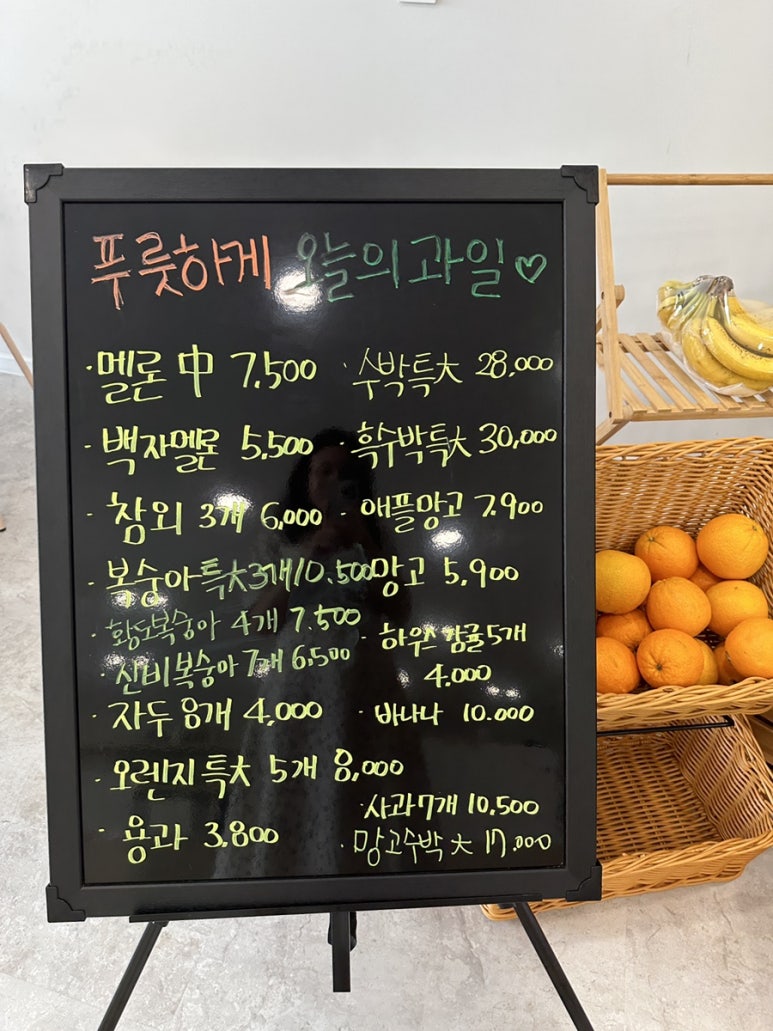 푸룻하게 오늘의 과일♡
· 멜론 中 7,500
· 백자멜론 5,500
· 참외 3개 6,000
· 복숭아 특大 3개 10.500
· 황도복숭아 4개 7.500
· 신비복숭아 7개 6,500
· 자두 8개 4,000
· 오렌지 특大 5개 8,000
· 용과 3.800
· 수박특大 28,000
· 흑수박특大 30,000
· 애플망고 7.900
망고 5,900
· 하우스 감귤 5개
4.000
· 바나나 10.000
· 사과 7개 10,500
· 망고수박 大 17.000